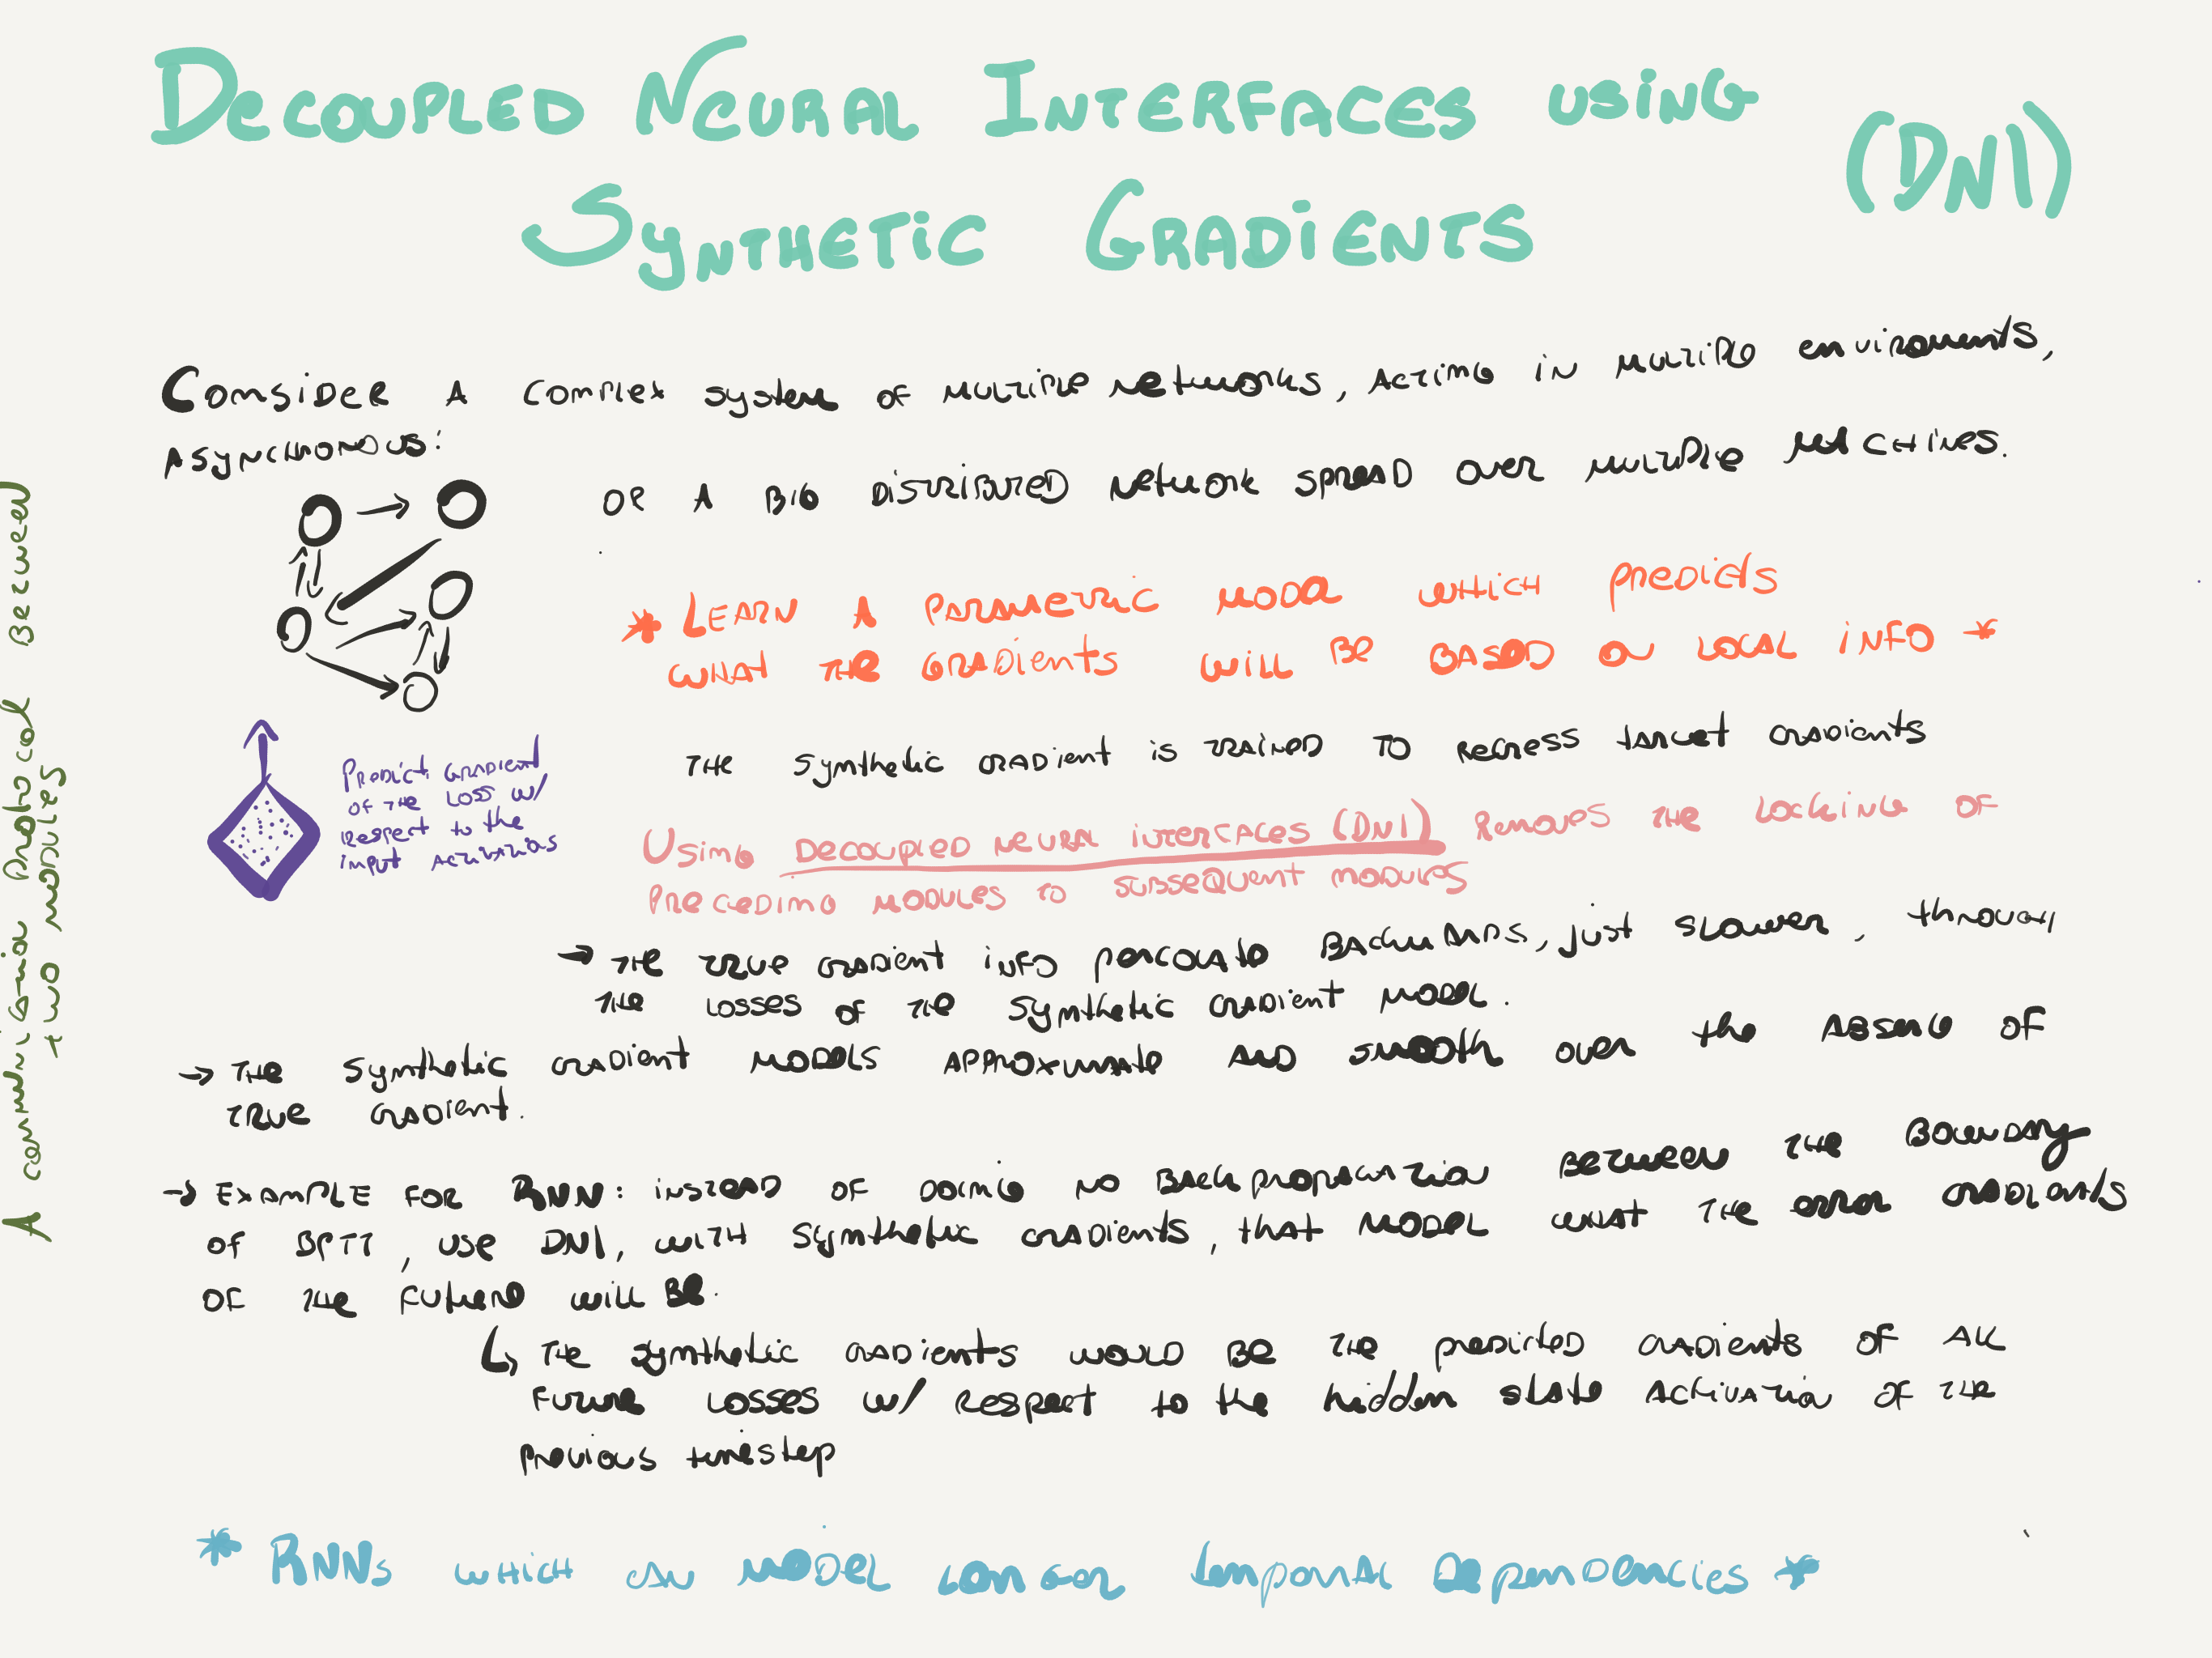 DECOUPLED NEURAL INTERFACES USING
(DNI)
SYNTHETIC GRADIENTS
CONSIDER A COMPLEX SYSTEM OF MULTIPLE NETWORKS, ACTING IN MULTIPLE ENVIROMENTS,
ASYNCHRONOUS:
OR A BIG DISTRIBUTED NETWORK SPREAD OVER MULTIPLE MACHINES.
* LEARN A PARAMETRIC MODEL WHICH PREDICTS
WHAT THE GRADIENTS WILL BE BASED ON LOCAL INFO *
PREDICT GRADIENT
OF THE LOSS W/
RESPECT TO THE
INPUT ACTIVATIONS
THE SYNTHETIC GRADIENT IS TRAINED TO REGRESS TARGET GRADIENTS
USING DECOUPLED NEURAL INTERFACES (DNI) REMOVES THE LOCKING OF
PRECEDING MODULES TO SUBSEQUENT MODULES
→ THE TRUE GRADIENT INFO PERCOLATE BACKWARDS, JUST SLOWER, THROUGH
THE LOSSES OF THE SYNTHETIC GRADIENT MODEL.
→ THE SYNTHETIC GRADIENT MODELS APPROXIMATE AND SMOOTH OVER THE ABSENCE OF
TRUE GRADIENT.
→ EXAMPLE FOR RNN: INSTEAD OF DOING NO BACKPROPAGATION BETWEEN THE BOUNDARY
OF BPTT, USE DNI, WITH SYNTHETIC GRADIENTS, THAT MODEL WHAT THE ERROR GRADIENTS
OF THE FUTURE WILL BE.
↳ THE SYNTHETIC GRADIENTS WOULD BE THE PREDICTED GRADIENTS OF ALL
FUTURE LOSSES W/ RESPECT TO THE HIDDEN STATE ACTIVATION OF THE
PREVIOUS TIMESTEP
* RNNs WHICH CAN MODEL LONGER TEMPORAL DEPENDENCIES *
A COMMUNICATION PROTOCOL BETWEEN
TWO MODULES